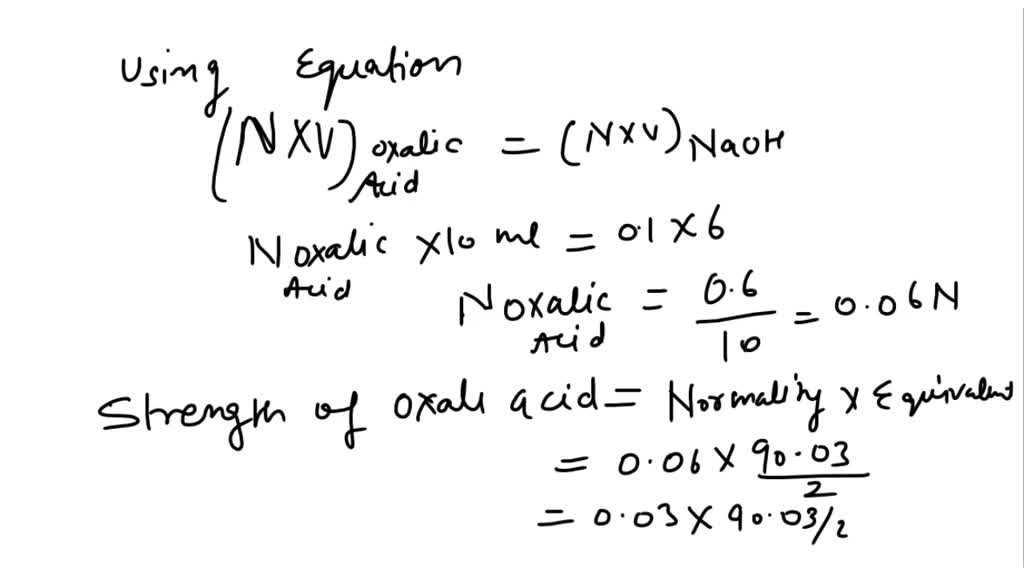 Using Equation
(N X V) oxalic Acid = (N x V) NaOH
N oxalic Acid X 10 ml = 0.1 X 6
N oxalic Acid = 0.6 / 10 = 0.06 N
Strength of oxalic acid = Normality x Equivalent
= 0.06 X 90.03 / 2
= 0.03 X 90.03/2